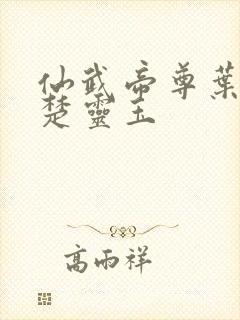 仙武帝尊葉
楚靈玉
高雨祥